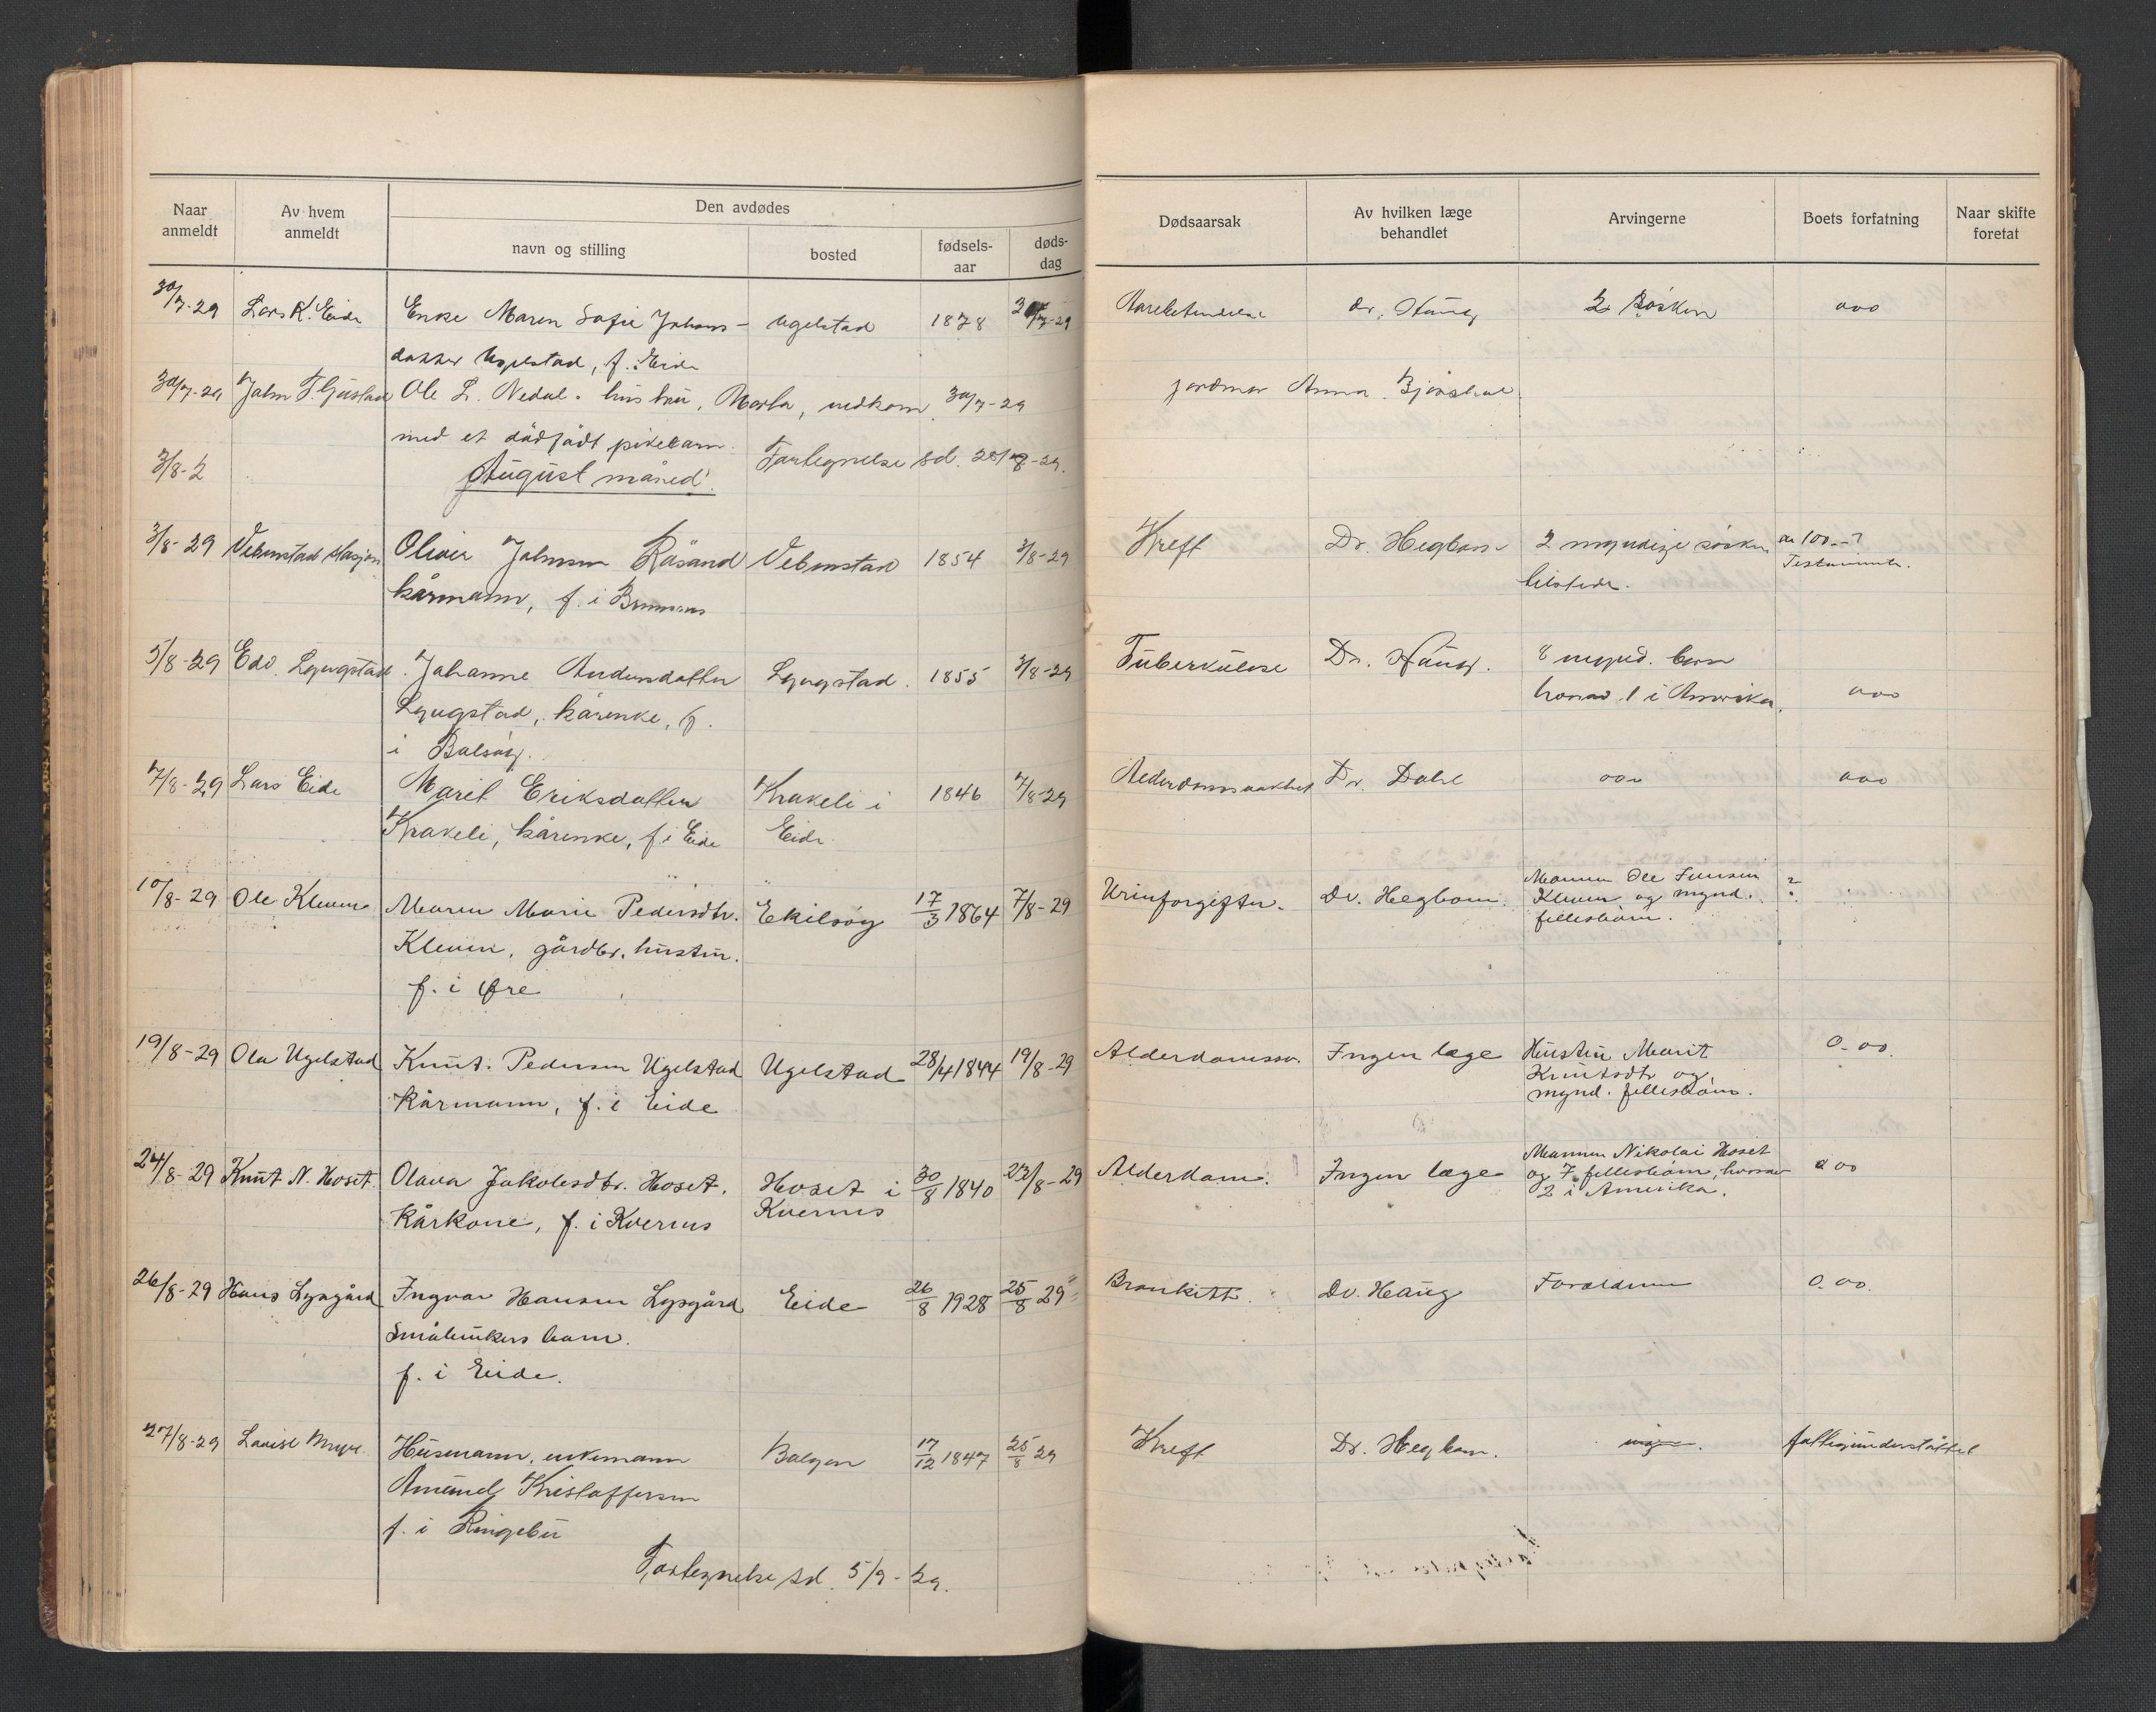 Naar anmeldt
Av hvem anmeldt
Den avdødes
navn og stilling
bosted
fødsels-aar
døds-dag
Dødsaarsak
Av hvilken læge behandlet
Arvingerne
Boets forfatning
Naar skifte foretat
30/7-29 Lars K. Eide Enke Maren Sofie Johans- Ugelstad 1878 7-29 dr. Haug 2 søsken 000
datter Ugelstad, f. Eide
30/7-29 John Ole L. Nedal. hustru, Marta, nedkom 30/7-29 jordmor Anna
med et dødfødt pikebarn.
3/8-2 August måned. Fortegnelse sd. -29.
3/8-29 stasjon Oliver Johnsen Råsand Vebenstad 1854 3/8-29 Kreft Dr. Hegbom 2 myndige søsken 100.-?
kårmann, f. i Bremsnes tilstede. Testamente.
5/8-29 Edv. Lyngstad Johanne Andersdatter Lyngstad. 1855 3/8-29 Tuberkulose Dr. Haug. 8 mynd. barn
Lyngstad, kårenke, f. hvorav 1 i Amerika. 000
i Bolsøy.
7/8-29 Lars Eide Marit Eriksdatter Krakeli i 1846 7/8-29 Alderdomssvakhet Dr. Dahl 000 000
Krakeli, kårenke, f. i Eide Eide
10/8-29 Ole Kleven Maren Marie Pedersdtr. Ekilsøy 17/3 1864 7/8-29 Urinforgiftn. Dr. Hegbom. Mannen Ole Kleven og mynd. fellesbarn. ?
Kleven, gårdbr. hustru.
f. i Øre
19/8-29 Ola Ugelstad Knut Pedersen Ugelstad Ugelstad 28/4 1844 19/8-29 Alderdomssv. Ingen læge Hustru Marit 0.00.
Kårmann, f. i Eide Knutsdtr og
mynd. fellesbarn.
24/8-29 Knut N. Hoset. Olava Jakobsdtr. Hoset. Hoset i 30/8 1840 23/8-29 Alderdom. Ingen læge Mannen Nikolai Hoset 000
Kårkone, f. i Kvernes Kvernes og 7 fellesbarn, hvorav
2 i Amerika.
26/8-29 Hans Lysgård Ingvar Hansen Lysgård Eide 26/8 1928 25/8 29 Bronkitt. Dr. Haug Foreldrene 0.00.
Småbrukers barn.
f. i Eide.
27/8-29 Lovise Myre Husmann, enkemann 17/12 1847 25/8 29 Kreft Dr. Hegbom. ingen. fattigunderstøttet
Amund Kristoffersen
f. i Ringebu
Fortegnelse sd. 5/9-29.